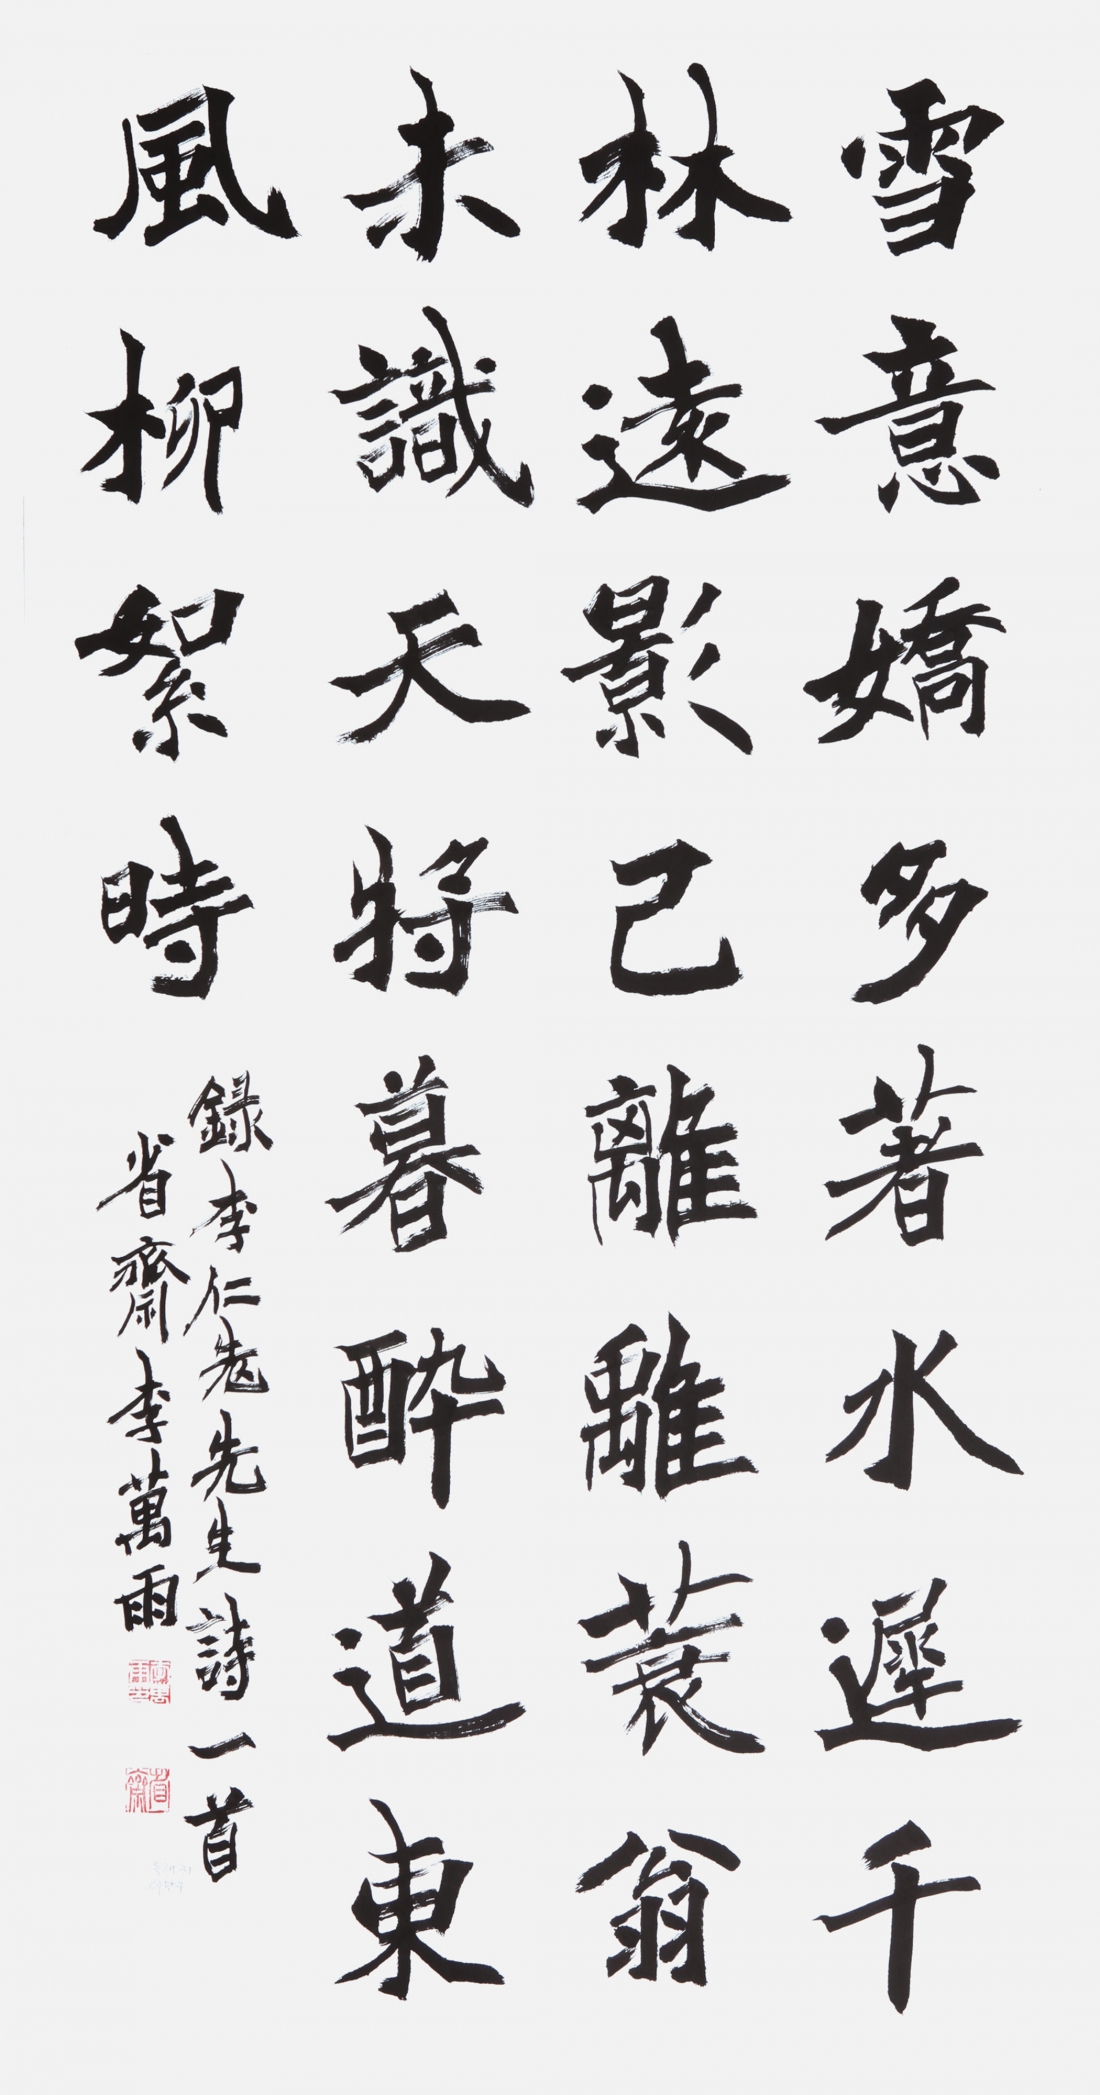 雪意嬌多著水遲千
林遠影已離離蓑翁
未識天將暮醉道東
風柳絮時
錄李仁老先生詩一首
省齋李萬雨
省齋